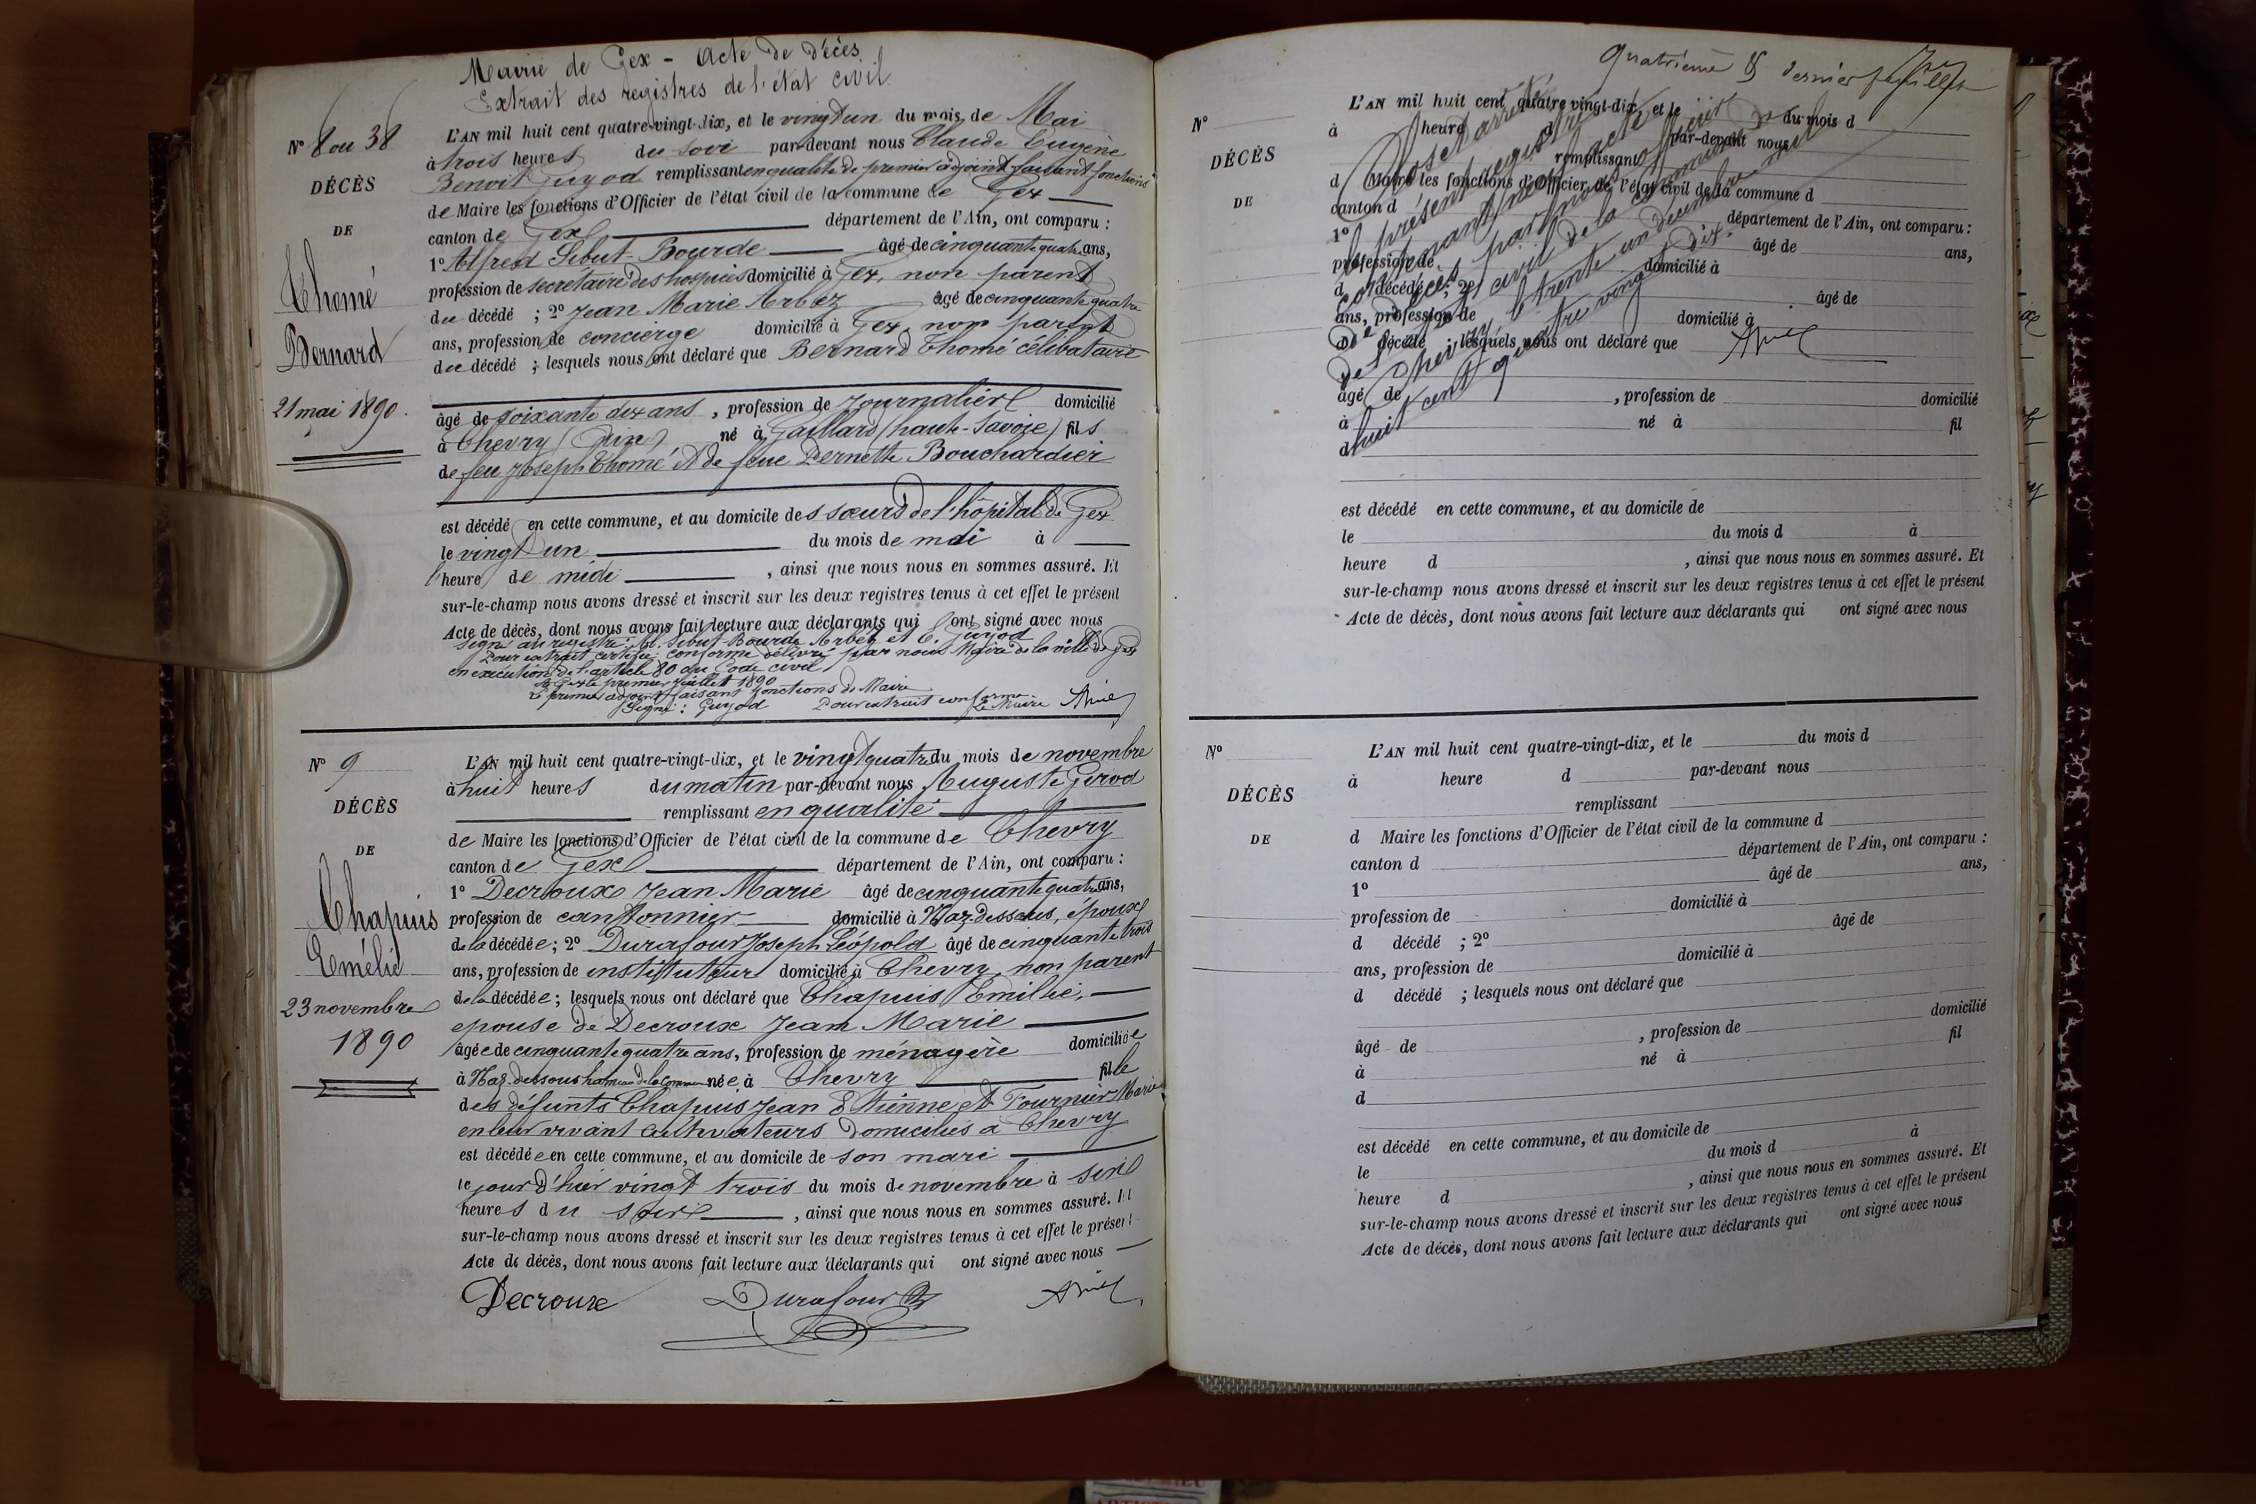 Mairie de Gex - Acte de décès
Extrait des registres de l'état civil
N° 8 ou 38
DÉCÈS
DE
Thomé
Bernard
21 mai 1890.
L'AN mil huit cent quatre-vingt-dix, et le vingt un du mois de Mai
à trois heures du soir par-devant nous Claude Eugène
Benoit Guyod remplissant en qualité de premier adjoint faisant fonctions
de Maire les fonctions d'Officier de l'état civil de la commune de Gex
canton de Gex département de l'Ain, ont comparu :
1° Alfred Sibut-Bourde âgé de cinquante quatre ans,
profession de secrétaire des hospices domicilié à Gex, non parent
du décédé ; 2° Jean Marie Arbez âgé de cinquante quatre
ans, profession de concierge domicilié à Gex, non parent
du décédé ; lesquels nous ont déclaré que Bernard Thomé célibataire
âgé de soixante dix ans , profession de journalier domicilié
à Chevry (Ain) né à Gaillard (haute-Savoie) fils
de feu Joseph Thomé et de feue Pernette Bouchardier
est décédé en cette commune, et au domicile des sœurs de l'hôpital de Gex
le vingt un du mois de mai à
l'heure de midi , ainsi que nous nous en sommes assuré. Et
sur-le-champ nous avons dressé et inscrit sur les deux registres tenus à cet effet le présent
Acte de décès, dont nous avons fait lecture aux déclarants qui ont signé avec nous
signé au registre : Al. Sibut-Bourde Arbez et C. Guyod
Pour extrait certifié conforme délivré par nous Maire de la ville de Gex
en exécution de l'article 80 du Code civil
A Gex le premier juillet 1890
Le premier adjoint faisant fonctions de Maire
Signé : Guyod Pour extrait conforme
Le Maire
N° 9
DÉCÈS
DE
Chapuis
Emélie
23 novembre
1890
L'AN mil huit cent quatre-vingt-dix, et le vingt quatre du mois de novembre
à huit heures du matin par-devant nous Auguste Girod
remplissant en qualité
de Maire les fonctions d'Officier de l'état civil de la commune de Chevry
canton de Gex département de l'Ain, ont comparu :
1° Decroux Jean Marie âgé de cinquante quatre ans,
profession de cantonnier domicilié à Naz-dessous, époux
de la décédée ; 2° Durafour Joseph Léopold âgé de cinquante trois
ans, profession de instituteur domicilié à Chevry, non parent
de la décédée ; lesquels nous ont déclaré que Chapuis Emilie,
épouse de Decroux Jean Marie
âgée de cinquante quatre ans, profession de ménagère domiciliée
à Naz-dessous hameau de la Commune née à Chevry fille
des défunts Chapuis Jean Etienne et Fournier Marie
en leur vivant cultivateurs domiciliés à Chevry
est décédée en cette commune, et au domicile de son mari
le jour d'hier vingt trois du mois de novembre à six
heures du soir , ainsi que nous nous en sommes assuré. Et
sur-le-champ nous avons dressé et inscrit sur les deux registres tenus à cet effet le présent
Acte de décès, dont nous avons fait lecture aux déclarants qui ont signé avec nous
Decroux Durafour
Quatrième & dernier feuillet
N°
DÉCÈS
DE
L'AN mil huit cent quatre-vingt-dix, et le du mois d
à heure d par-devant nous
remplissant
d Maire les fonctions d'Officier de l'état civil de la commune d
canton d département de l'Ain, ont comparu :
1° âgé de ans,
profession de domicilié à
d décédé ; 2° âgé de
ans, profession de domicilié à
d décédé ; lesquels nous ont déclaré que
âgé de , profession de domicilié
à né à fil
d
est décédé en cette commune, et au domicile de
le du mois d à
heure d , ainsi que nous nous en sommes assuré. Et
sur-le-champ nous avons dressé et inscrit sur les deux registres tenus à cet effet le présent
Acte de décès, dont nous avons fait lecture aux déclarants qui ont signé avec nous
Clos et arrêté
le présent registre
contenant neuf actes
de décès par nous officier
de l'état civil de la commune
de Chevry le trente un décembre mil
huit cent quatre vingt dix.
N°
DÉCÈS
DE
L'AN mil huit cent quatre-vingt-dix, et le du mois d
à heure d par-devant nous
remplissant
d Maire les fonctions d'Officier de l'état civil de la commune d
canton d département de l'Ain, ont comparu :
1° âgé de ans,
profession de domicilié à
d décédé ; 2° âgé de
ans, profession de domicilié à
d décédé ; lesquels nous ont déclaré que
âgé de , profession de domicilié
à né à fil
d
est décédé en cette commune, et au domicile de
le du mois d à
heure d , ainsi que nous nous en sommes assuré. Et
sur-le-champ nous avons dressé et inscrit sur les deux registres tenus à cet effet le présent
Acte de décès, dont nous avons fait lecture aux déclarants qui ont signé avec nous